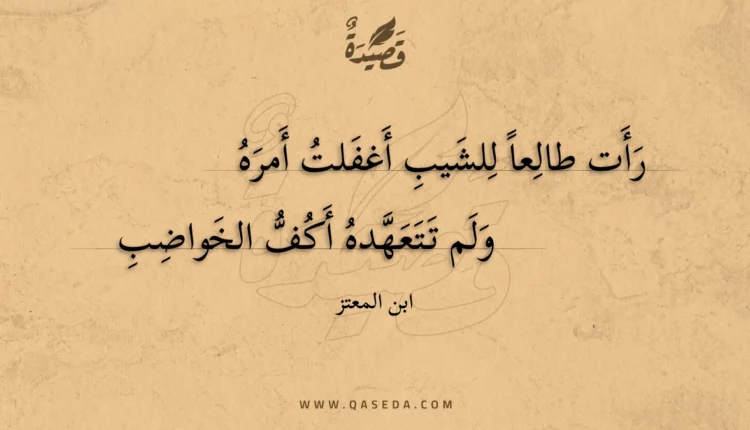 قَصِيدَةٌ
رَأَت طالِعاً لِلشَيبِ أَغفَلتُ أَمرَهُ
وَلَم تَتَعَهَّدهُ أَكُفُّ الخَواضِبِ
ابن المعتز
WWW.QASEDA.COM